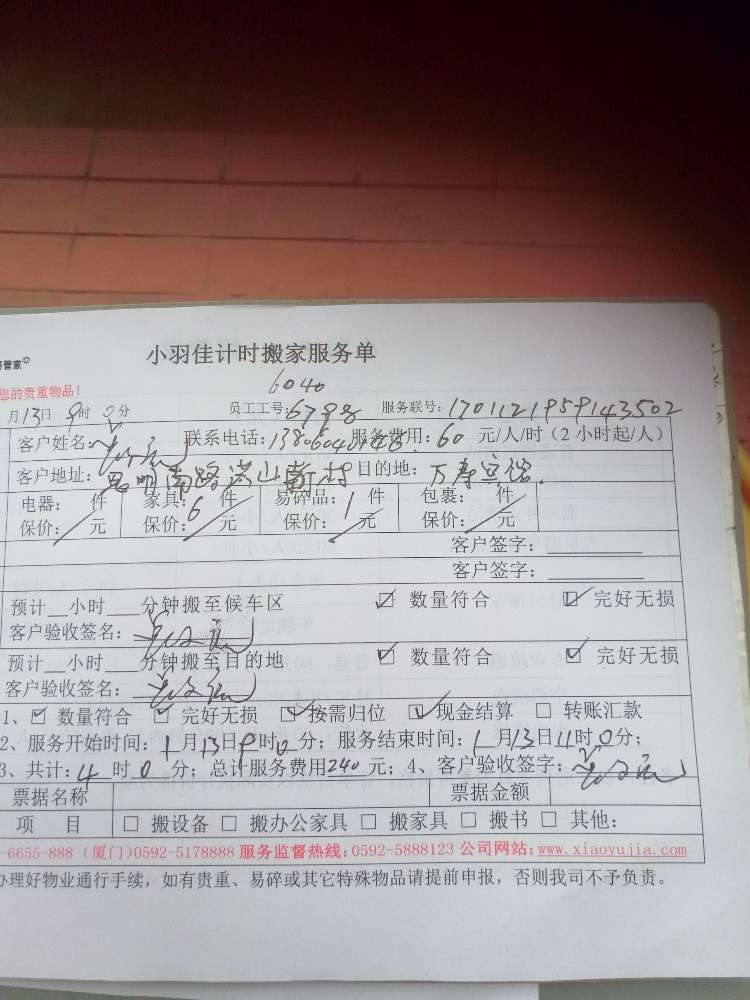 管家©
小羽佳计时搬家服务单
您的贵重物品！
6040
月13日 9时 0分 员工工号:6798 服务联号:1701121959143502
客户姓名: 联系电话: 服务费用:60 元/人/时（2小时起/人）
客户地址:昆明南路洪山新村 目的地:万寿宾馆.
电器: 件 家具:6 件 易碎品:1 件 包裹: 件
保价: 元 保价: 元 保价: 元 保价: 元
客户签字:
客户签字:
预计__小时___分钟搬至候车区 ☑ 数量符合 ☑ 完好无损
客户验收签名:
预计__小时___分钟搬至目的地 ☑ 数量符合 ☑ 完好无损
客户验收签名:
1、☑ 数量符合 ☑ 完好无损 ☑ 按需归位 ☑ 现金结算 □ 转账汇款
2、服务开始时间:1月13日9时0分；服务结束时间:1月13日11时0分；
3、共计:4时0分；总计服务费用240元；4、客户验收签字:
票据名称 票据金额
项 目 □ 搬设备 □ 搬办公家具 □ 搬家具 □ 搬书 □ 其他:
-6655-888（厦门）0592-5178888 服务监督热线:0592-5888123 公司网站:www.xiaoyujia.com
办理好物业通行手续，如有贵重、易碎或其它特殊物品请提前申报，否则我司不予负责。